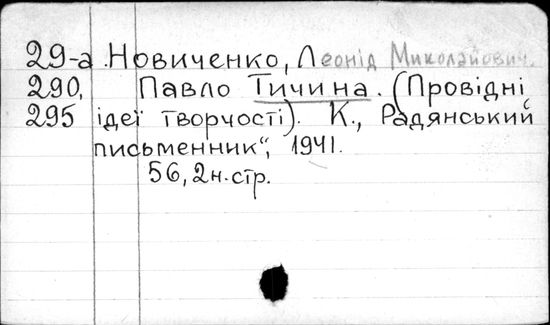 29-а Новиченко, Леонід Миколайович.
290, Павло Тичина. (Провідні
295 ідеї творчості). К., Радянський
письменник", 1941.
56, 2 н. стр.